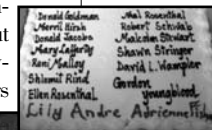 n-
ut
y-
rs
Donald Goldman
Merril Hirsh
Donald Jacobs
Mary Lafferty
Roni Malloy
Shlomit Rind
Ellen Rosenthal
Mal Rosenthal
Robert Schwab
Malcolm Stewart
Shawn Stringer
David L. Wampler
Gordon
youngblood
Lily Andre Adrienne Fish